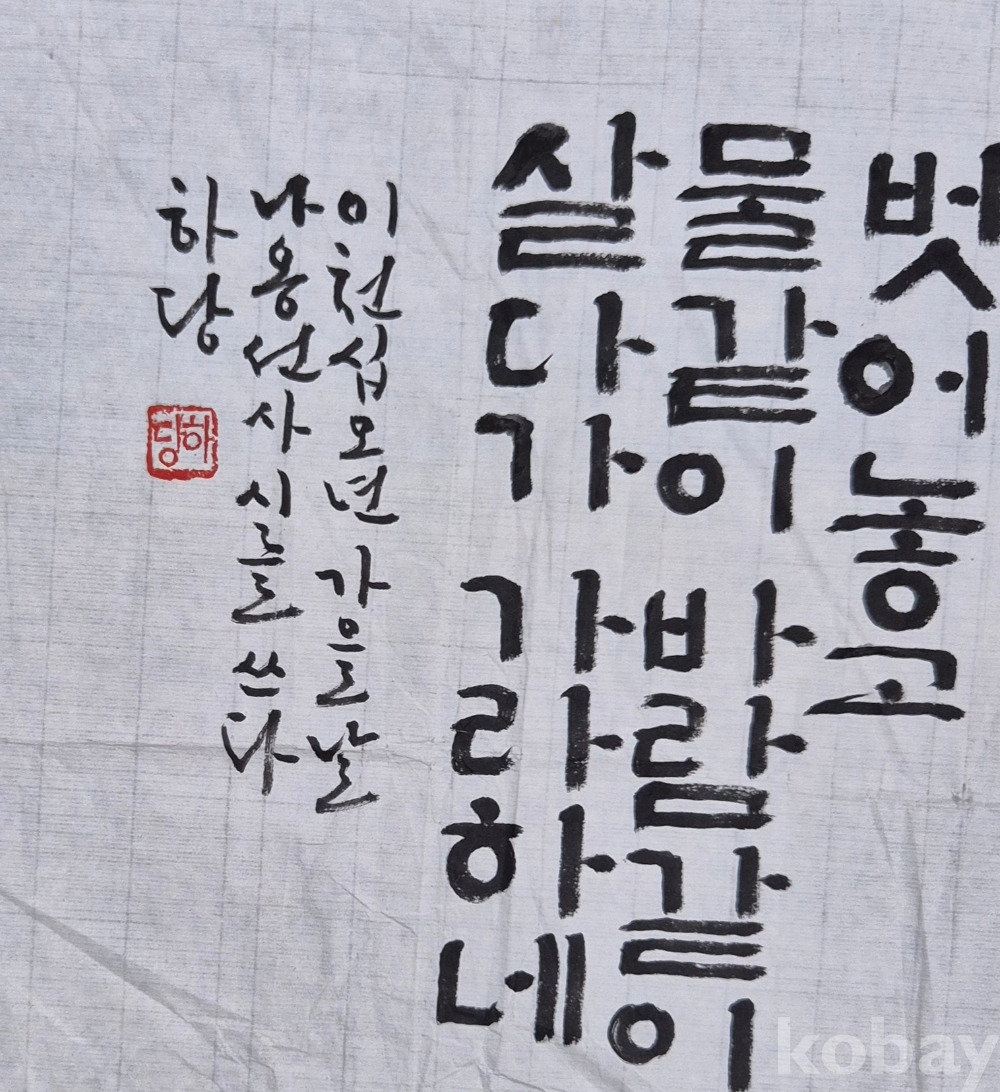 벗어놓고
물같이 바람같이
살다가 가라하네
이천십오년 가을날
나옹선사 시를 쓰다
하당
하당
kobay